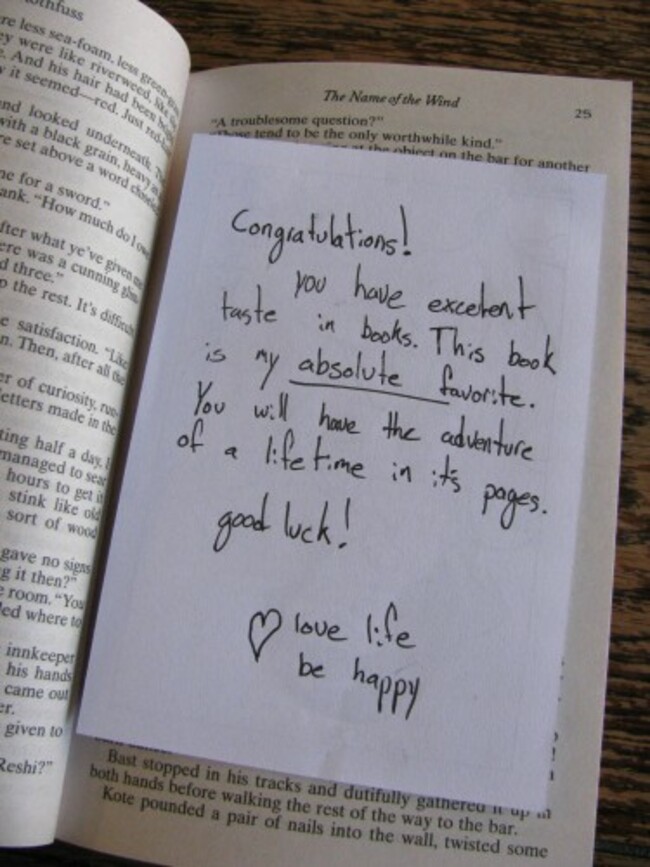 othfuss
re less sea-foam, less green
ey were like riverweed, like
e. And his hair had been
y it seemed—red. Just red
nd looked underneath.
with a black grain, heavy as
re set above a word
ne for a sword."
ank. "How much do I owe
fter what ye've given me
ere was a cunning
d three."
p the rest. It's difficult
e satisfaction. "Like
n. Then, after all the
er of curiosity, run
etters made in the
ting half a day, I
managed to sear
hours to get it
stink like old
sort of wood
gave no signs
g it then?"
e room. "You
led where to
innkeeper
his hands
came out
er.
given to
Reshi?"
The Name of the Wind
25
"A troublesome question?"
"Those tend to be the only worthwhile kind."
at the object on the bar for another
Congratulations!
you have excellent
taste in books. This book
is my absolute favorite.
You will have the adventure
of a lifetime in it's pages.
good luck!
♡ love life
be happy
Bast stopped in his tracks and dutifully gathered it up in
both hands before walking the rest of the way to the bar.
Kote pounded a pair of nails into the wall, twisted some